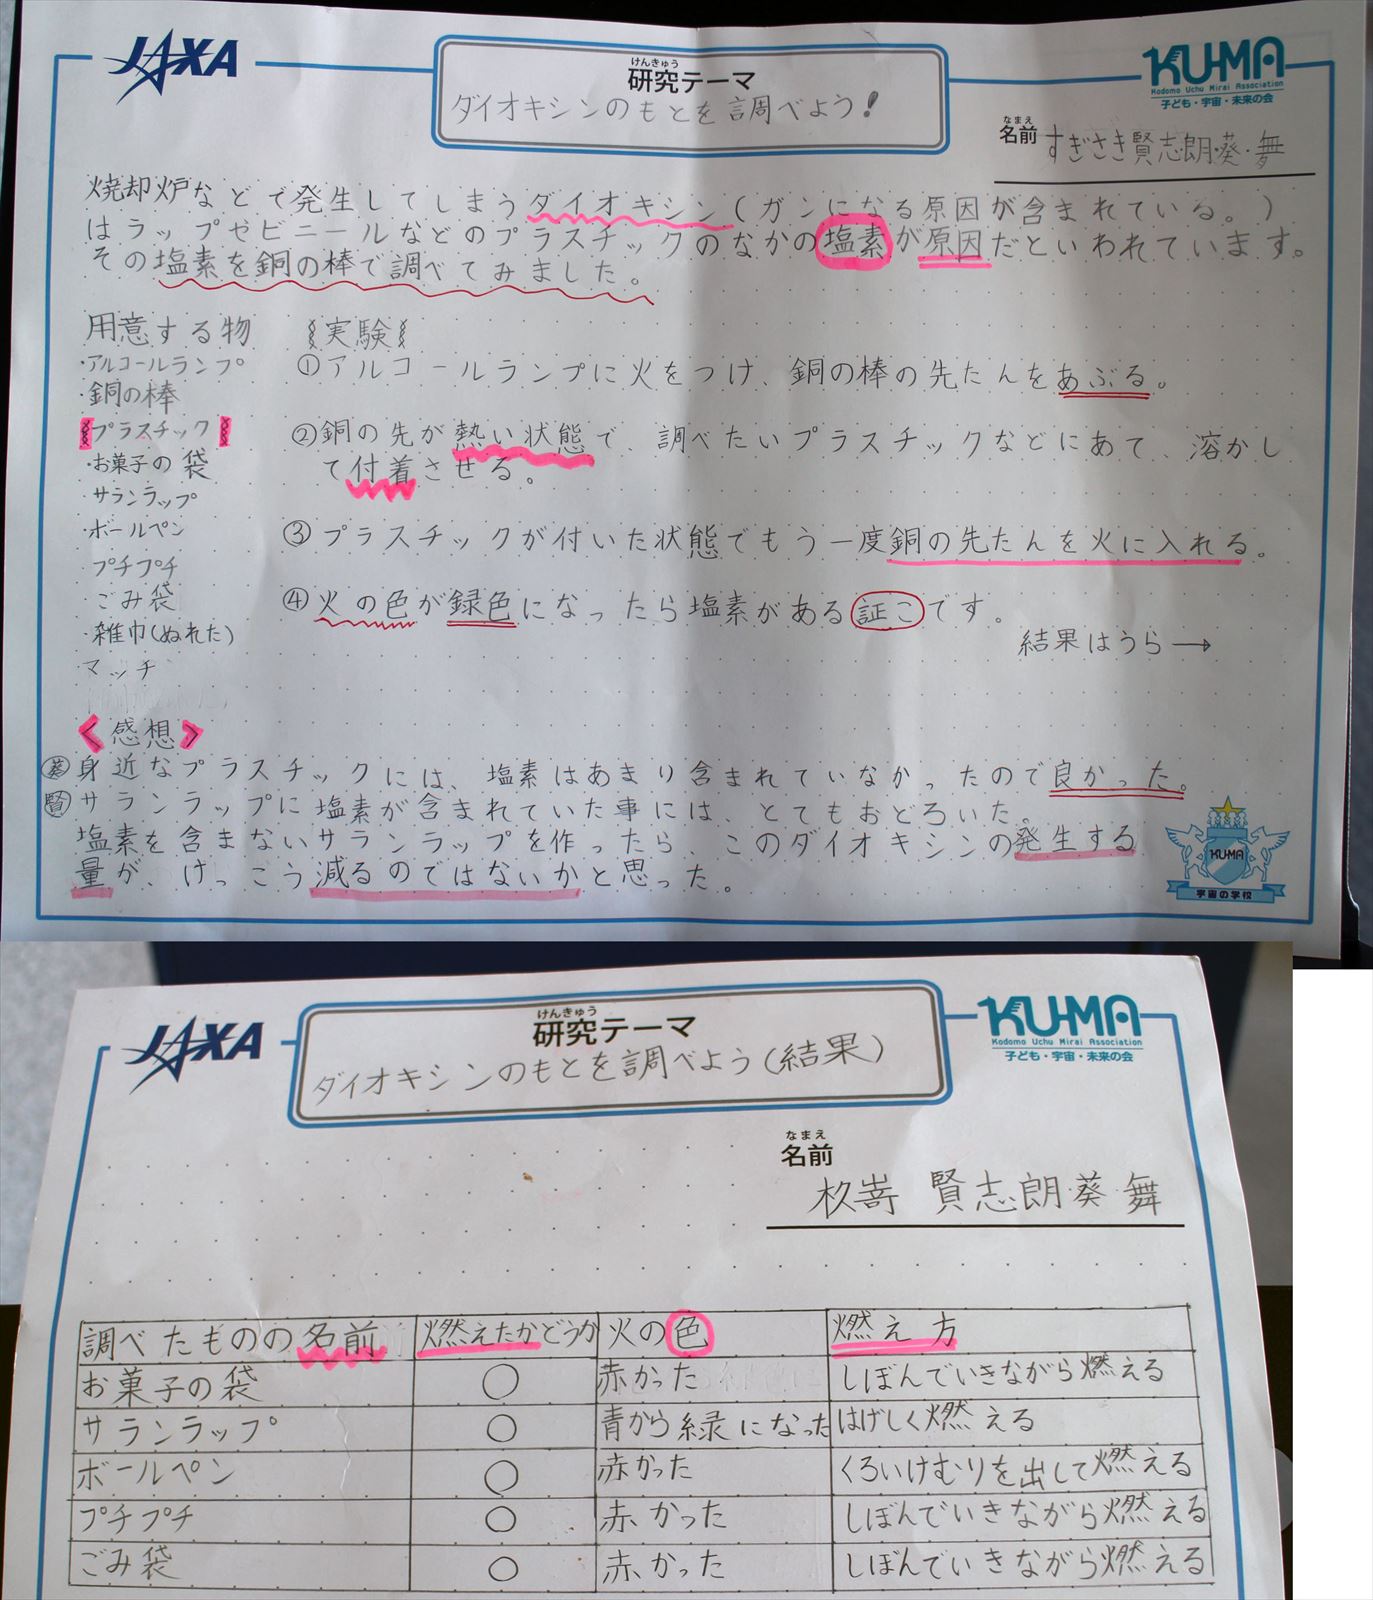 JAXA
けんきゅう
研究テーマ
ダイオキシンのもとを調べよう!
KU-MA
Kodomo Uchu Mirai Association
子ども・宇宙・未来の会
なまえ
名前 すぎさき賢志朗・葵・舞
焼却炉などで発生してしまうダイオキシン(ガンになる原因が含まれている。)
はラップやビニールなどのプラスチックのなかの塩素が原因だといわれています。
その塩素を銅の棒で調べてみました。
用意する物
・アルコールランプ
・銅の棒
プラスチック
・お菓子の袋
サランラップ
・ボールペン
プチプチ
ごみ袋
・雑巾(ぬれた)
マッチ
実験
①アルコールランプに火をつけ、銅の棒の先たんをあぶる。
②銅の先が熱い状態で、調べたいプラスチックなどにあて、溶かし
て付着させる。
③プラスチックが付いた状態でもう一度銅の先たんを火に入れる。
④火の色が録色になったら塩素がある証こです。
結果はうら→
<感想>
葵 身近なプラスチックには、塩素はあまり含まれていなかったので良かった。
賢 サランラップに塩素が含まれていた事には、とてもおどろいた。
塩素を含まないサランラップを作ったら、このダイオキシンの発生する
量が、けっこう減るのではないかと思った。
KUMA
宇宙の学校
JAXA
けんきゅう
研究テーマ
ダイオキシンのもとを調べよう(結果)
KU-MA
Kodomo Uchu Mirai Association
子ども・宇宙・未来の会
なまえ
名前
杦嵜 賢志朗 葵 舞
調べたものの名前 燃えたかどうか 火の色 燃え方
お菓子の袋 ○ 赤かった しぼんでいきながら燃える
サランラップ ○ 青から緑になった はげしく燃える
ボールペン ○ 赤かった くろいけむりを出して燃える
プチプチ ○ 赤かった しぼんでいきながら燃える
ごみ袋 ○ 赤かった しぼんでいきながら燃える